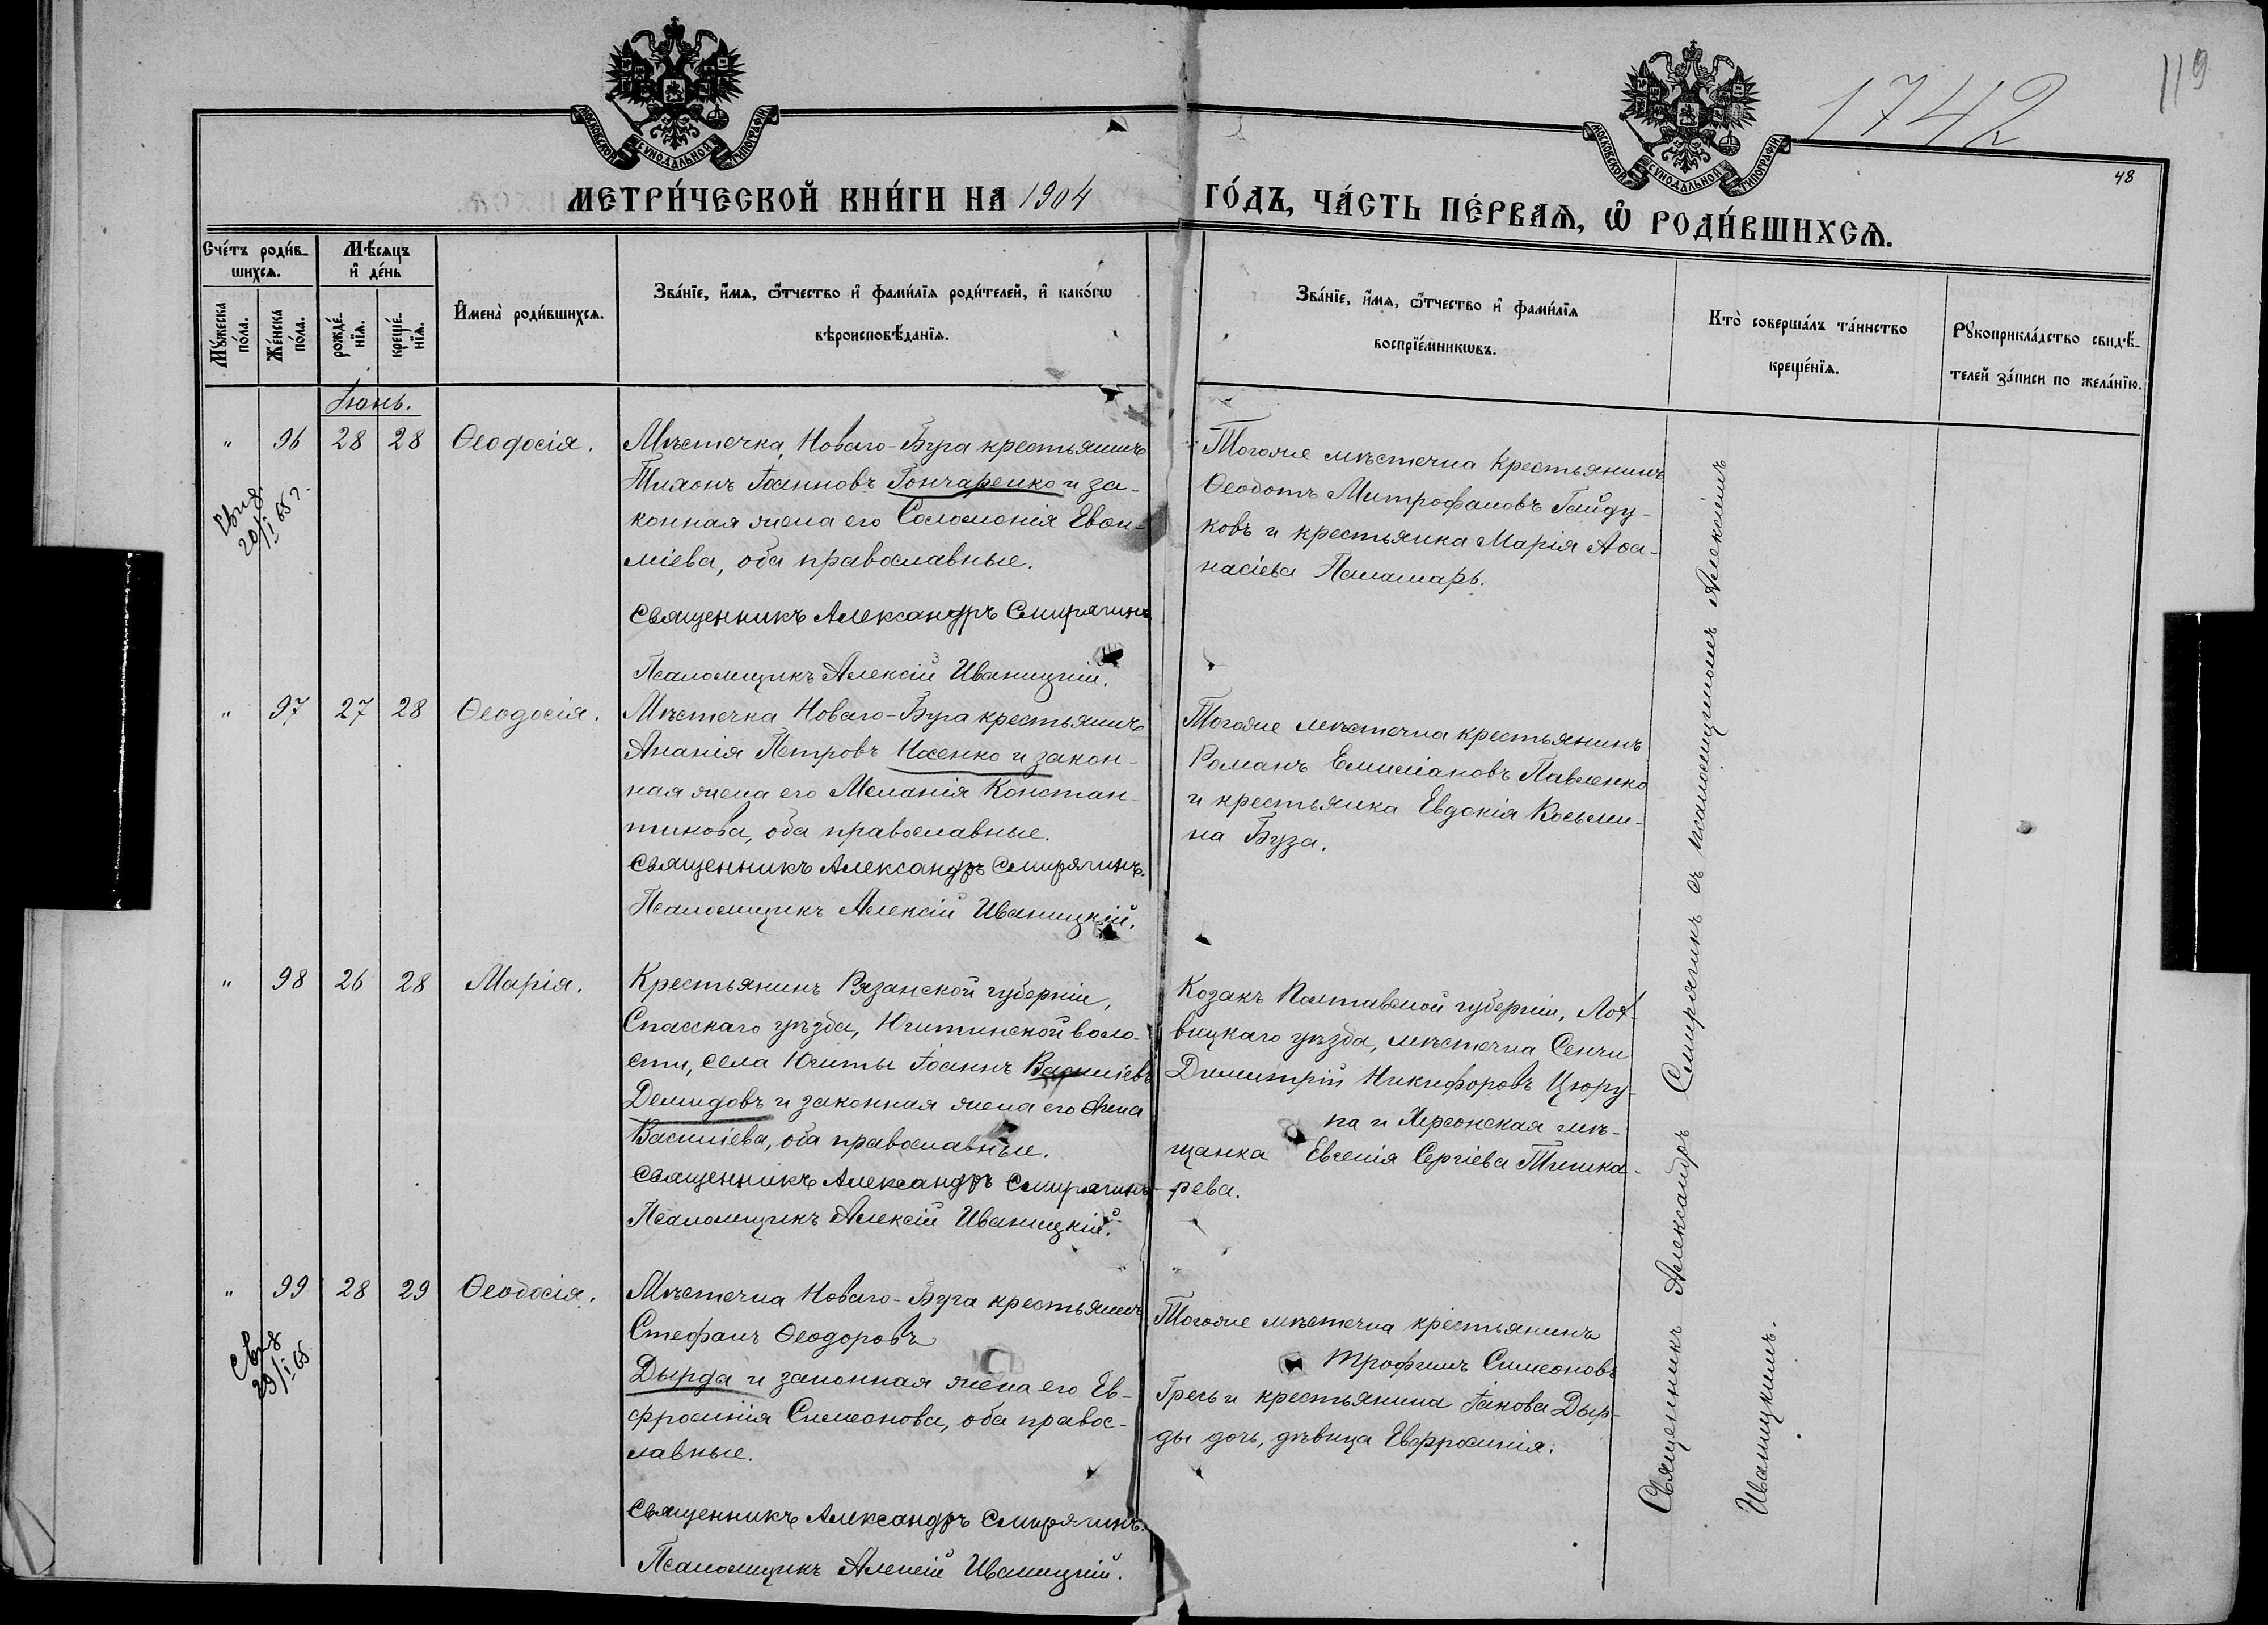 1742
119
48
МОСКОВСКОЙ СУНОДАЛЬНОЙ ТИПОГРАФІИ
МОСКОВСКОЙ СУНОДАЛЬНОЙ ТИПОГРАФІИ
МЕТРИ́ЧЕСКОЙ КНИ́ГИ НА 1904
ГО́ДЪ, ЧА́СТЬ ПЕ́РВАѦ, Ѡ҆ РОДИ́ВШИХСѦ.
Сче́тъ роди́в-
шихсѧ.
Мѣ́сѧцъ
и҆ де́нь
Мꙋ́жеска
по́ла.
Же́нска
по́ла.
рожде́-
нїѧ.
креще́-
нїѧ.
И҆мена̀ роди́вшихсѧ.
Зва́нїе, и҆́мѧ, ѻ҆́тчество и҆ фами́лїѧ роди́телей, и҆ како́гѡ
вѣроисповѣ́данїѧ.
Зва́нїе, и҆́мѧ, ѻ҆́тчество и҆ фами́лїѧ
воспрїе́мникѡвъ.
Кто̀ соверша́лъ та́инство
креще́нїѧ.
Рꙋкоприкла́дство свидѣ́-
телей за́писи по жела́нїю.
Іюнь.
" 96 28 28 Ѳеодосія.
Свид.
20/I 65 г.
Мѣстечка Новаго-Буга крестьянинъ
Тихонъ Іоанновъ Гончаренко и за-
конная жена его Соломонія Евѳи-
міева, оба православные.
Священникъ Александръ Смирягинъ
Псаломщикъ Алексій Иваницкій.
Тогоже мѣстечка крестьянинъ
Ѳеодотъ Митрофановъ Гайду-
ковъ и крестьянка Марія Аѳа-
насіева Паламарь.
" 97 27 28 Ѳеодосія.
Мѣстечка Новаго-Буга крестьянинъ
Ананія Петровъ Носенко и закон-
ная жена его Меланія Констан-
тинова, оба православные.
Священникъ Александръ Смирягинъ.
Псаломщикъ Алексій Иваницкій.
Тогоже мѣстечка крестьянинъ
Романъ Емиліановъ Павленко
и крестьянка Евдокія Косьми-
на Буза.
" 98 26 28 Марія.
Крестьянинъ Рязанской губерніи,
Спасскаго уѣзда, Ижитинской воло-
сти, села Ижиты Іоаннъ Василіевъ
Демидовъ и законная жена его Анна
Василіева, оба православные.
Священникъ Александръ Смирягинъ
Псаломщикъ Алексій Иваницкій.
Козакъ Полтавской губерніи, Лох-
вицкаго уѣзда, мѣстечка Сенчи
Димитрій Никифоровъ Цюру-
па и Херсонская мѣ-
щанка Евгенія Сергіева Тишка-
рева.
" 99 28 29 Ѳеодосія.
Свид
29/I 65
Мѣстечка Новаго-Буга крестьянинъ
Стефанъ Ѳеодоровъ
Дырда и законная жена его Ев-
фросинія Симеонова, оба правос-
лавные.
Священникъ Александръ Смирягинъ.
Псаломщикъ Алексій Иваницкій.
Тогоже мѣстечка крестьянинъ
Трофимъ Симеоновъ
Гресь и крестьянина Іакова Дыр-
ды дочь, дѣвица Евфросинія.
Священникъ Александръ Смирягинъ съ псаломщикомъ Алексіемъ
Иваницкимъ.